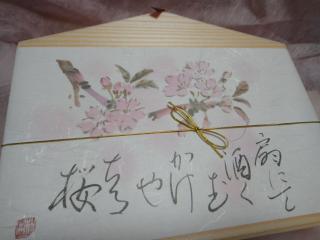 扇にて
酒くむ
かけや
ちる
桜